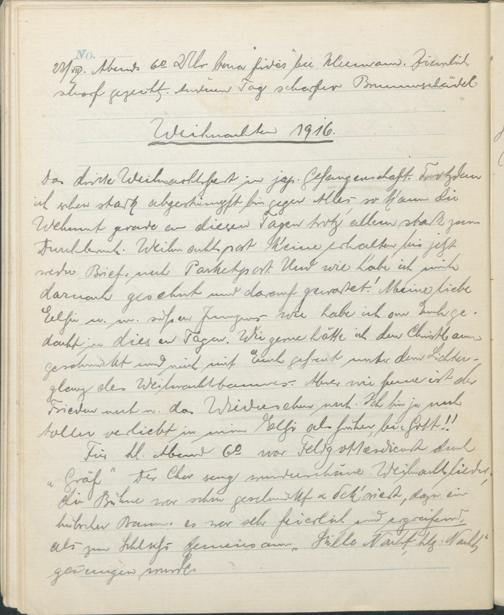 No.
Abends 6° Uhr bona fides bei Kleemann. Ziemlich
scharf gezecht. anderen Tag scharfer Brummschädel
Weihnachten 1916.
Das dritte Weihnachtsfest in jap. Gefangenschaft. Trotzdem
ich schon stark abgestumpft bin gegen Alles, so kam die
Wehmut grade an diesen Tagen trotz allem stark zum
Durchbruch. Weihnachtspost keine erhalten bis jetzt
weder Brief- noch Packetpost. Und wie habe ich mich
darnach gesehnt und darauf gewartet! Meine liebe
Elfie u. m. süßen Jungens wie habe ich an Euch ge-
dacht in diesen Tagen. Wie gerne hätte ich den Christbaum
geschmückt und mich mit Euch gefreut unter dem Lichter-
glanz des Weihnachtsbaumes. Aber wie ferne ist der
Frieden noch u. das Wiedersehen noch. Ich bin ja noch
toller verliebt in meine Elfie als früher, bei Gott!!
Für hl. Abend 6° war Feldgottesdienst durch
"Gräf" Der Chor sang wunderschöne Weihnachtslieder,
die Bühne war schön geschmückt u. dekoriert, dazu ein
hübscher Baum. es war sehr feierlich und ergreifend,
als zum Schluß gemeinsam "Stille Nacht, hlg. Nacht"
gesungen wurde.